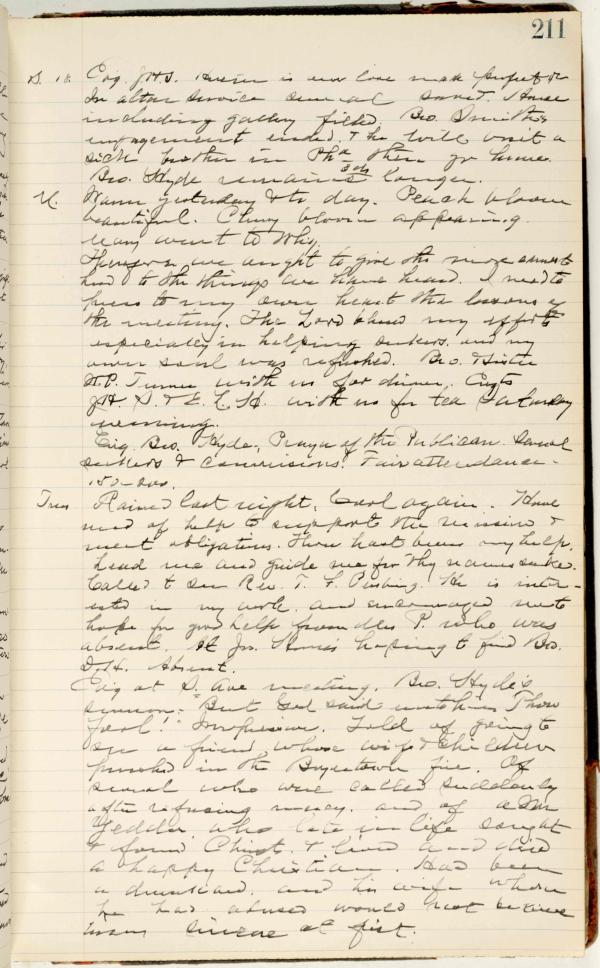 211
S. 18. Evg. J.H.S. Herein is our love made perfect &c
In altar service several saved. House
including gallery filled. Bro. Smith's
engagement ended, & he will visit a
sick brother in Pha then go home.
Bro. Hyde remains longer.
M. Warm yesterday & to day. Peach bloom
beautiful. Cherry bloom appearing.
Mary went to
Therefore we ought to give the more earnest
heed to the things we have heard. I need to
press to my own heart the lessons of
the meeting. The Lord blessed my efforts
especially in helping seekers, and my
own soul was refreshed. Bro. Sister
H. P. Turner with us for dinner.
J.H. S. & E. L. H. with us for tea Saturday
evening.
Evg. Bro. Hyde, Prayer of the Publican. Several
seekers & conversions. Fair attendance -
150-200.
Tues Rained last night, Cool again. Have
need of help to support the mission &
meet obligations. Thou hast been my help.
Lead me and guide me for Thy name's sake.
Called to see Rev. T. F. He is inter-
ested in my work, and encouraged me to
hope for good help from Mrs P. who was
absent. At Jos. hoping to find Bro.
D.H. Absent.
Evg at S. Ave meeting. Bro. Hyde's
sermon: "But God said unto him, Thou
fool!" Impressive. Told of going to
see a friend whose wife & children
perished in the Boyertown fire. Of
several who were called suddenly
after refusing mercy, and of a Mr
Yedder who late in life sought
& found Christ, & lived and died
a happy Christian. Had been
a drunkard, and his wife whom
he had abused would not believe
sincere at first.